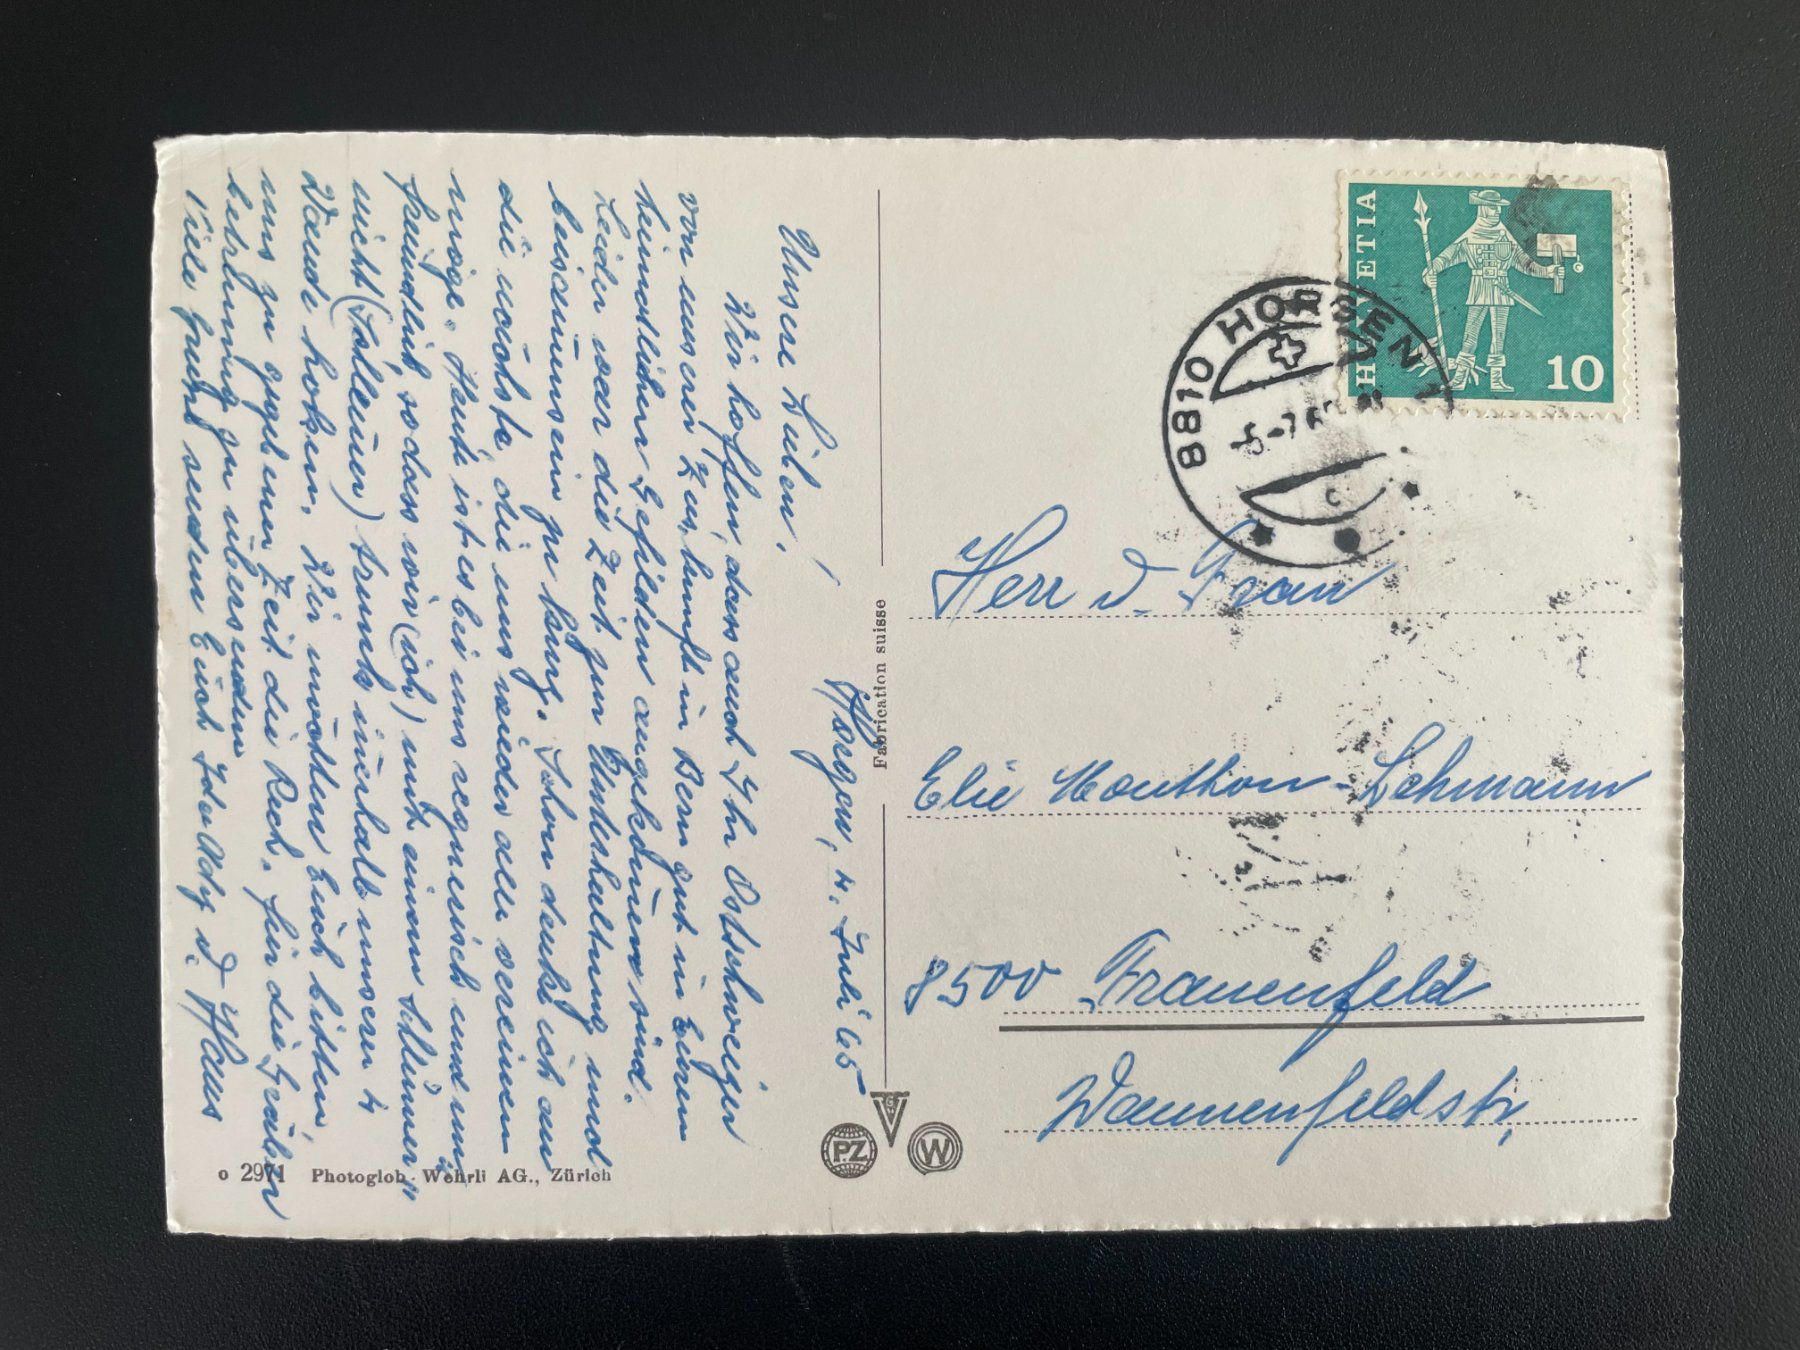 Horgen, 4. Juli 65
Unsere Lieben!
Wir hoffen, dass auch Ihr Ostschweizer
von unserer Zus.kunft in Bern gut in Euren
heimatlichen Gefilden angekommen sind.
Leider war die Zeit zur Unterhaltung und
beisammensein zu kurz. Schon denke ich an
die nächste, die uns wieder alle vereinen
möge. Heute ist es bei uns regnerisch und un-
freundlich, sodass wir (ich) mit einem
nicht trunk innerhalb unseren 4
Wände hocken. Wir möchten Euch bitten,
uns zu gegebener Zeit die Rech. für die
zu übersenden
Viele Grüsse senden Euch Ida Ady u. Hans
Fabrication suisse
HELVETIA
10
8810 HORGEN 1
5-7.65
c
Herr u. Frau
Elie Lehmann
8500 Frauenfeld
Wannenfeldstr.
PZ
W
o 2971 Photoglob-Wehrli AG., Zürich